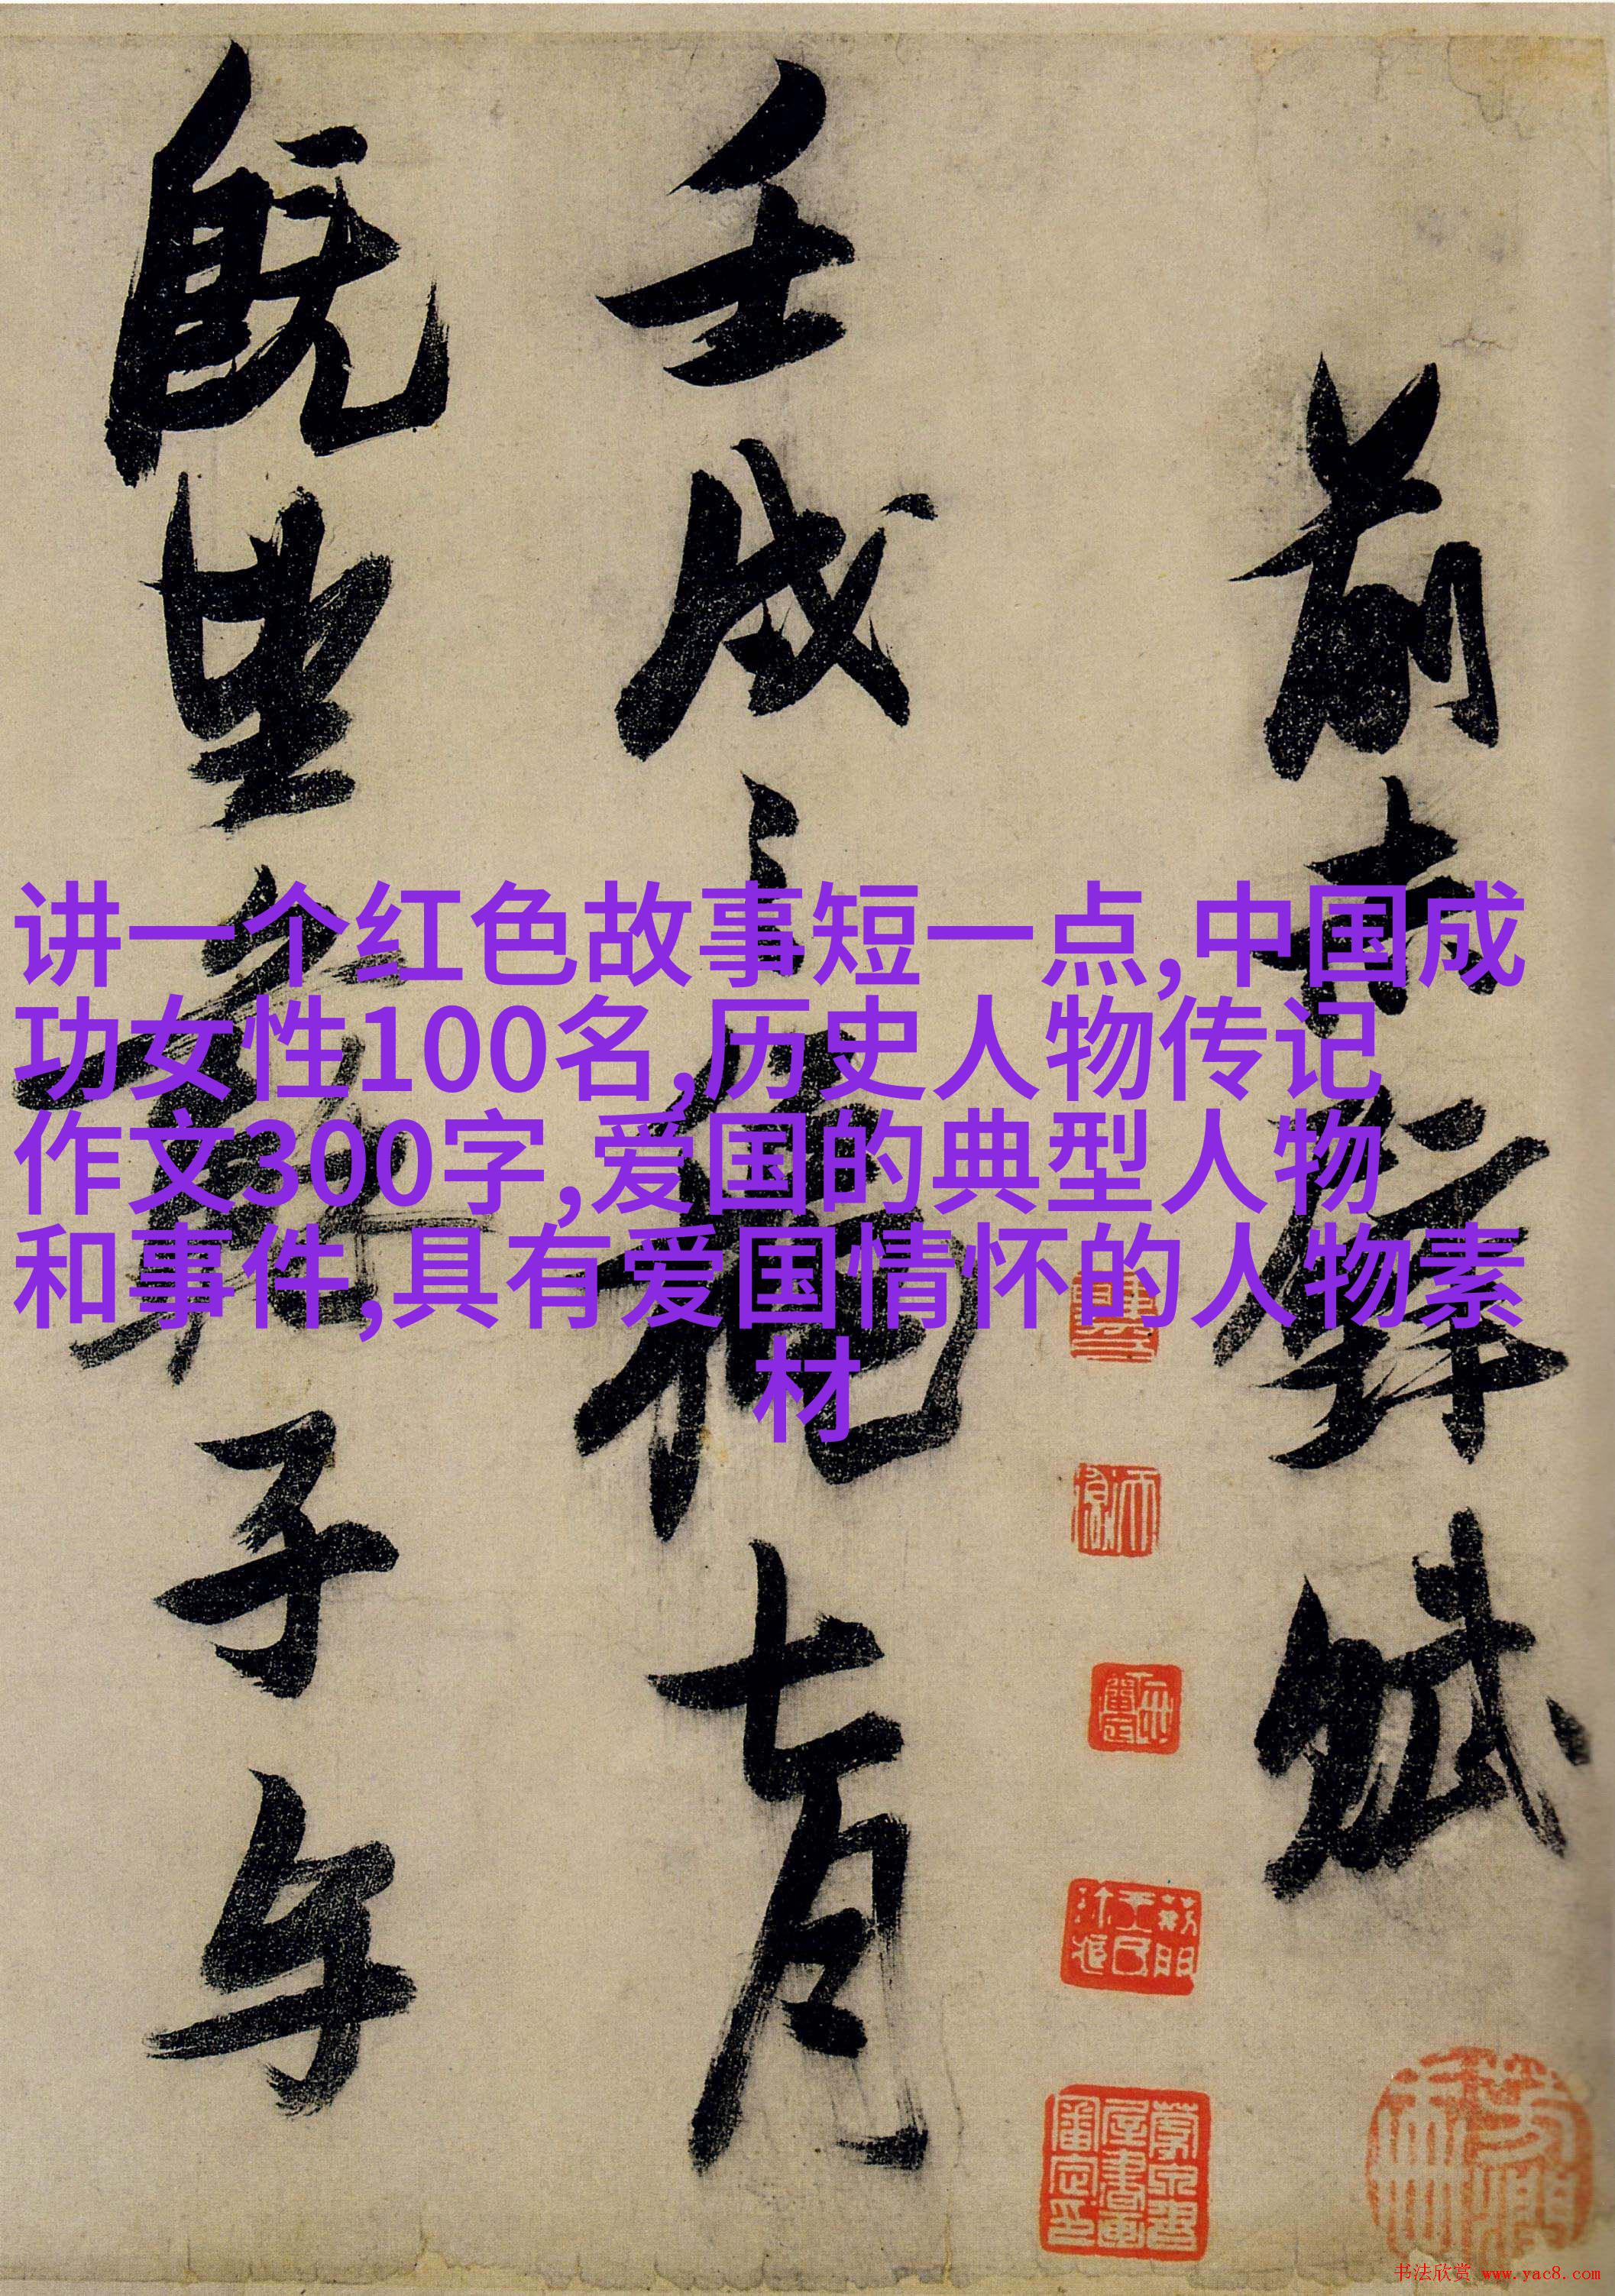 前赤壁賦
壬戌之秋七月
既望蘇子与
讲一个红色故事短一点,中国成
功女性100名,历史人物传记
作文300字,爱国的典型人物
和事件,具有爱国情怀的人物素
材
书法欣赏 www.yac8.com